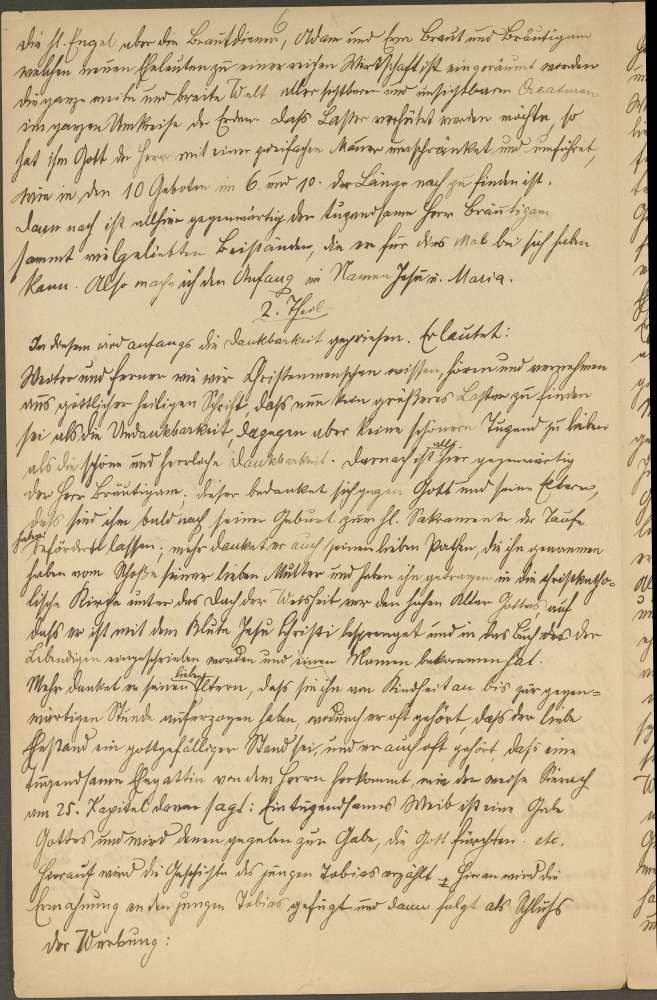 6
die hl. Engel aber die Brautdiener, Adam und Eva Braut und Bräutigam
welchen neuen Eheleuten zu einer reichen Wirtschaft ist eingeräumt worden
die ganze weite und breite Welt aller sichtbaren und unsichtbaren Creaturen
im ganzen Umkreise der Erden. Dass Laster verhütet werden möchte, so
hat ihm Gott der Herr mit einer zweifachen Mauer umschränket und umführet,
wie in den 10 Geboten im 6. und 10. der Länge nach zu finden ist.
Dann nach ist allhier gegenwärtig der tugendsame Herr Bräutigam
sammt vielgeliebten Beiständen, die er für dies Mal bei sich haben
kann. Also mach ich den Anfang im Namen Jesu u. Maria.
2. Theil
In diesem wird anfangs die Dankbarkeit gepriesen. Er lautet:
Weiter und ferner wie wir Christenmenschen wissen, hören und vernehmen
aus göttlicher heiligen Schrift, dass nun kein größeres Laster zu finden
sei als die Undankbarkeit, dagegen aber keine schönere Tugend zu lieben
als die schöne und herrliche Dankbarkeit. Darnach ist allhier gegenwärtig
der Herr Bräutigam. Dieser bedanket sich gegen Gott und seine Eltern,
dass sie ihn bald nach seiner Geburt zum hl. Sakramente der Taufe
haben befördert lassen; mehr danket er auch seinen lieben Pathen, die ihn genommen
haben vom Schoße seiner lieben Mutter und haben ihn getragen in die christkatho-
lische Kirche unter das Dach der Weisheit vor den hohen Altar Gottes, auf
dass er ist mit dem Blute Jesu Christi besprenget und in das Buch der
Lebendigen eingeschrieben worden und einen Namen bekommen hat.
Mehr danket er seinen lieben Eltern, dass sie ihn von Kindheit an bis zur gegen-
wärtigen Stunde auferzogen haben, wodurch er oft gehört, dass der liebe
Ehestand ein gottgefälliger Stand sei, und er auch oft gehört, dass eine
tugendsame Ehegattin von dem Herrn herkommt, wie der weise Sirach
am 25. Kapitel davon sagt: Ein tugendsames Weib ist eine Gabe
Gottes und wird denen gegeben zur Gabe, die Gott fürchten. etc.
Hierauf wird die Geschichte des jungen Tobias erzählt. Hieran wird die
Ermahnung an den jungen Tobias gefügt und dann folgt als Schluss
der Werbung: